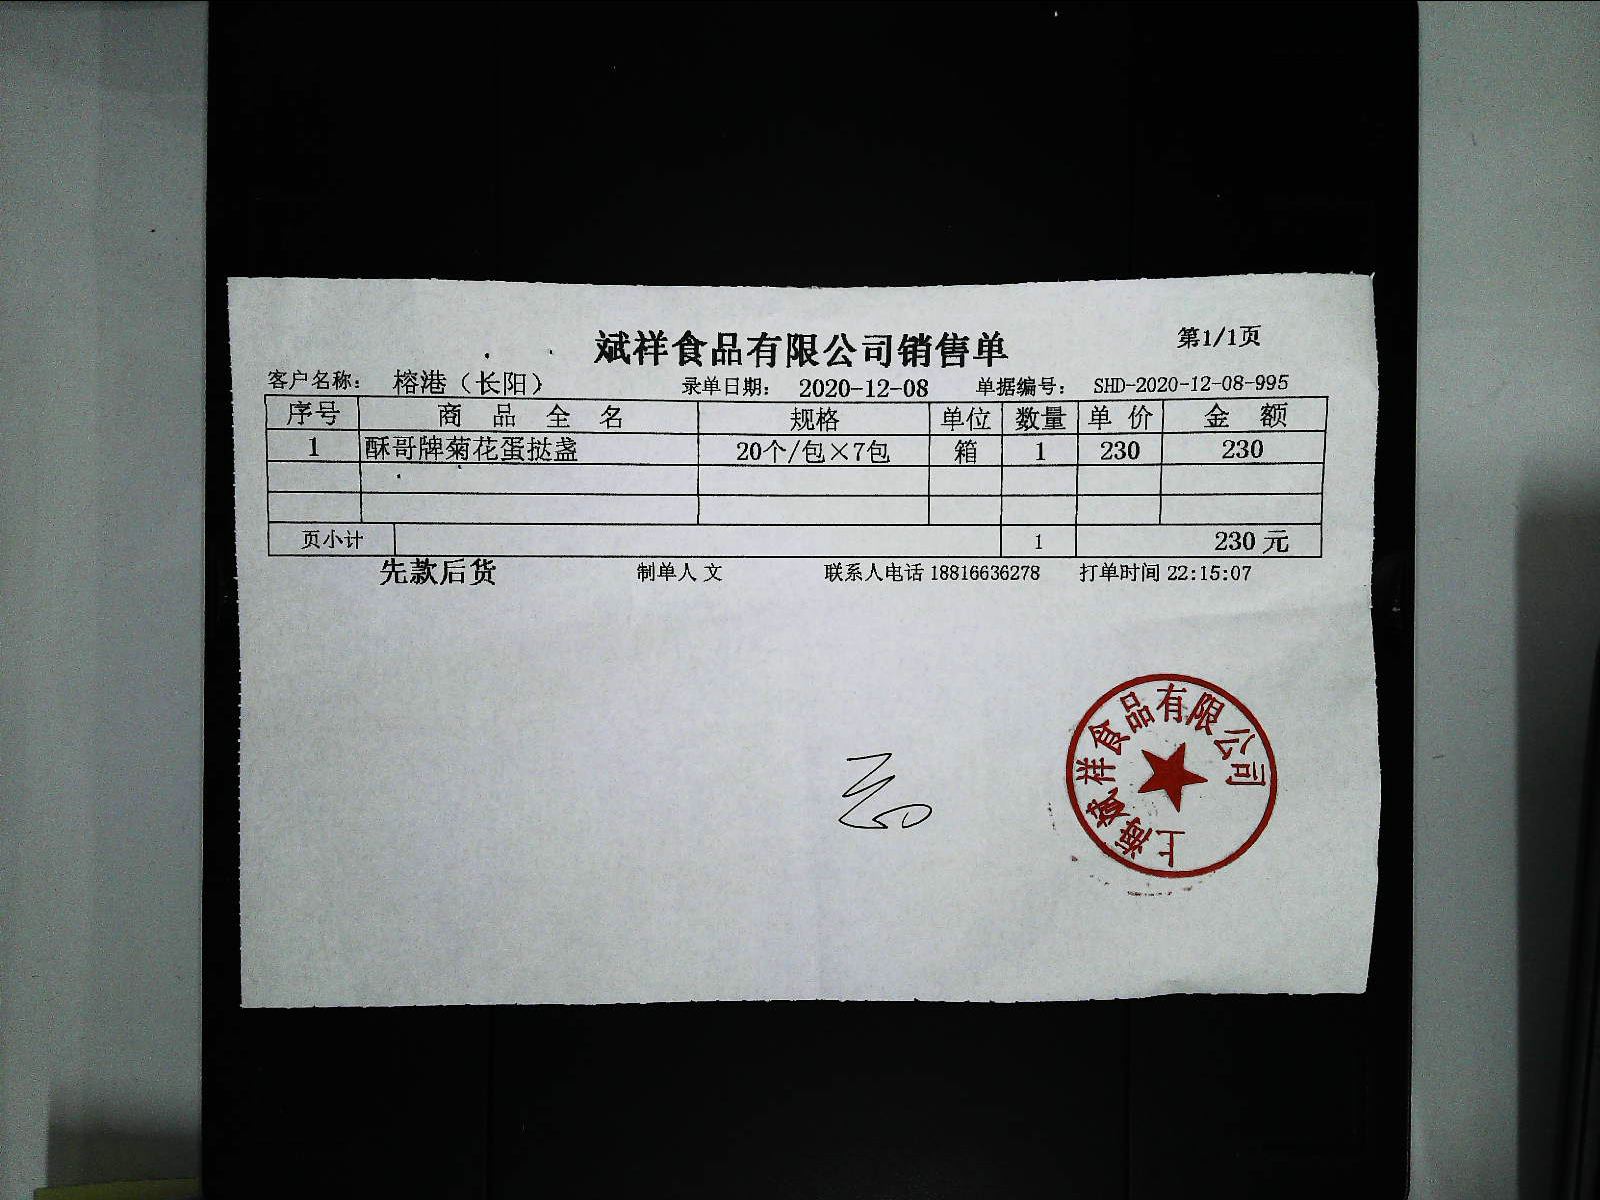 斌祥食品有限公司销售单 第1/1页
客户名称: 榕港（长阳） 录单日期: 2020-12-08 单据编号: SHD-2020-12-08-995
序号 商品全名 规格 单位 数量 单价 金额
1 酥哥牌菊花蛋挞盏 20个/包×7包 箱 1 230 230
页小计 1 230元
先款后货 制单人 文 联系人电话 18816636278 打单时间 22:15:07
上海斌祥食品有限公司